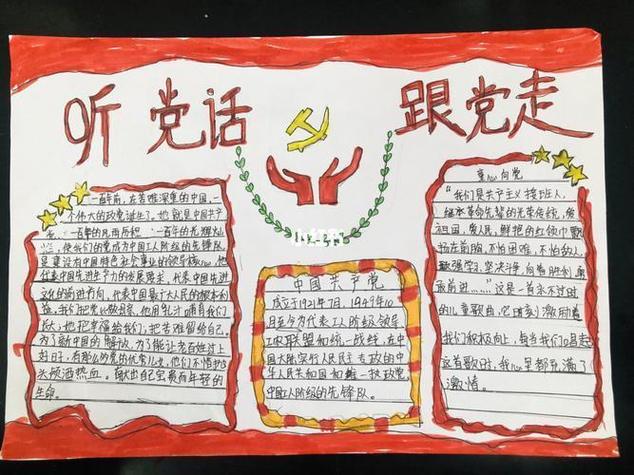 听党话 跟党走
一百年前,在苦难深重的中国,一
个伟大的政党诞生了,他就是中国共产
党。一百年的风雨历程,一百年的光辉灿
烂,使我们的党成为中国工人阶级的先锋队,
是建设有中国特色社会事业的领导核心,他
代表中国先进生产力的发展要求,代表中国先进
文化的前进方向,代表中国最广大人民的根本利
益。我们把党比做母亲,他用乳汁哺育我们
成长,他把幸福给我们,把苦难留给自己,
为了新中国的解放,为了能让老百姓过上
好日子,有那么多党的优秀儿女,他们不惜抛
头颅洒热血。献出自己宝贵而年轻的
生命。
小红书
中国共产党
成立于1921年7月,1949年10
月至今为代表工人阶级领导
工农联盟和统一战线,在中
国大陆实行人民民主专政的中
华人民共和国和唯一执政党,
中国工人阶级的先锋队。
童心向党
"我们是共产主义接班人,
继承革命先辈的光荣传统,爱
祖国,爱人民,鲜艳的红领巾飘
扬在前胸,不怕困难,不怕敌人,
顽强学习,坚决斗争,向着胜利,勇
敢前进……"这是一首永不过时
的儿童歌曲,它时刻激励着
我们积极向上,每当我们唱起
这首歌时,我心里都充满了
激情。